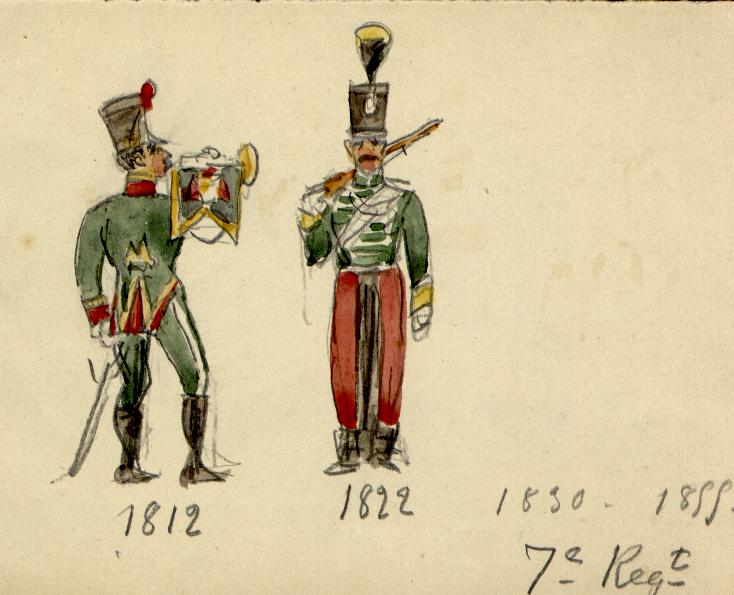 1812
1822
1830 - 1855.
7e Regt